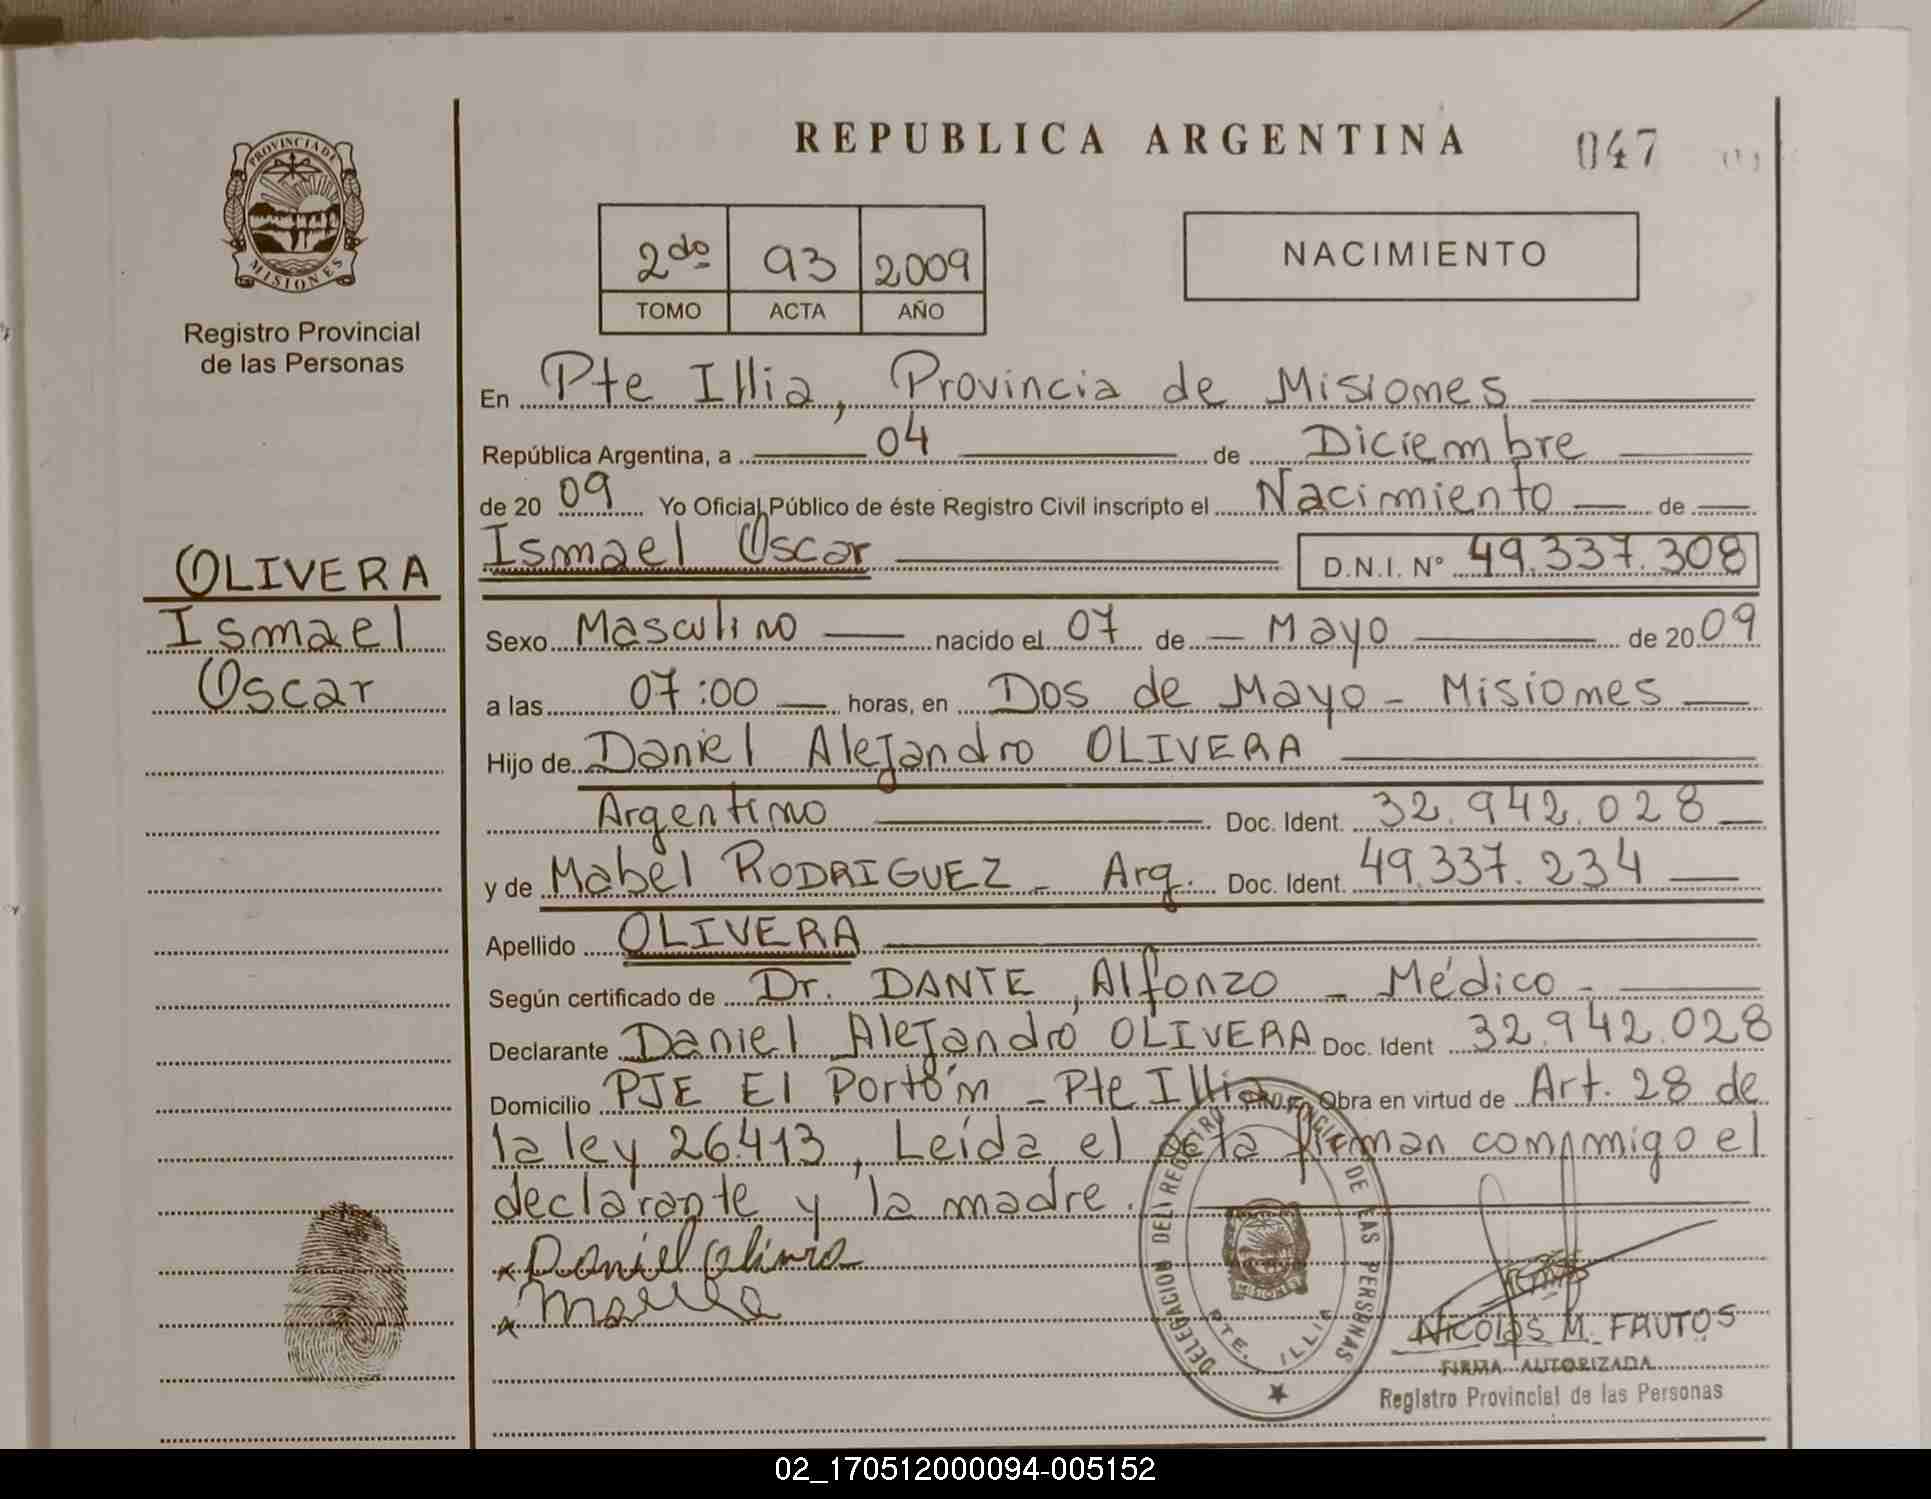 REPUBLICA ARGENTINA
047
PROVINCIA DE
MISIONES
Registro Provincial
de las Personas
2do 93 2009
TOMO ACTA AÑO
NACIMIENTO
En Pte Illia, Provincia de Misiones
República Argentina, a 04 de Diciembre
de 20 09 Yo Oficial Público de éste Registro Civil inscripto el Nacimiento de
Ismael Oscar D.N.I. N° 49.337.308
OLIVERA
Ismael
Oscar
Sexo Masculino nacido el 07 de Mayo de 20 09
a las 07:00 horas, en Dos de Mayo - Misiones
Hijo de Daniel Alejandro OLIVERA
Argentino Doc. Ident. 32.942.028
y de Mabel RODRIGUEZ - Arg. Doc. Ident. 49.337.234
Apellido OLIVERA
Según certificado de Dr. DANTE, Alfonzo - Médico -
Declarante Daniel Alejandro OLIVERA Doc. Ident 32.942.028
Domicilio PJE El Portón - Pte Illia Obra en virtud de Art. 28 de
la ley 26.413, Leída el acta firman conmigo el
declarante y la madre.
x Daniel Olivera
x
DELEGACION DEL REGISTRO PROVINCIAL DE LAS PERSONAS
MISIONES
PTE. ILLIA
NICOLAS M. FAUTOS
FIRMA AUTORIZADA
Registro Provincial de las Personas
02_170512000094-005152